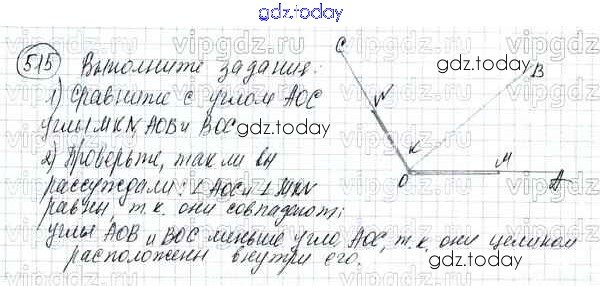 gdz.today
515 Выполните задания:
1) Сравните с углом AOC
углы MKN, AOB и BOC
2) Проверьте, так ли вы
рассуждали: ∠AOC и ∠MKN
равны, т.к. они совпадают;
углы AOB и BOC меньше угла AOC, т.к. они целиком
расположены внутри его.
C
N
B
K
O
M
A
gdz.today
gdz.today
gdz.today
gdz.today
vipgdz.ru